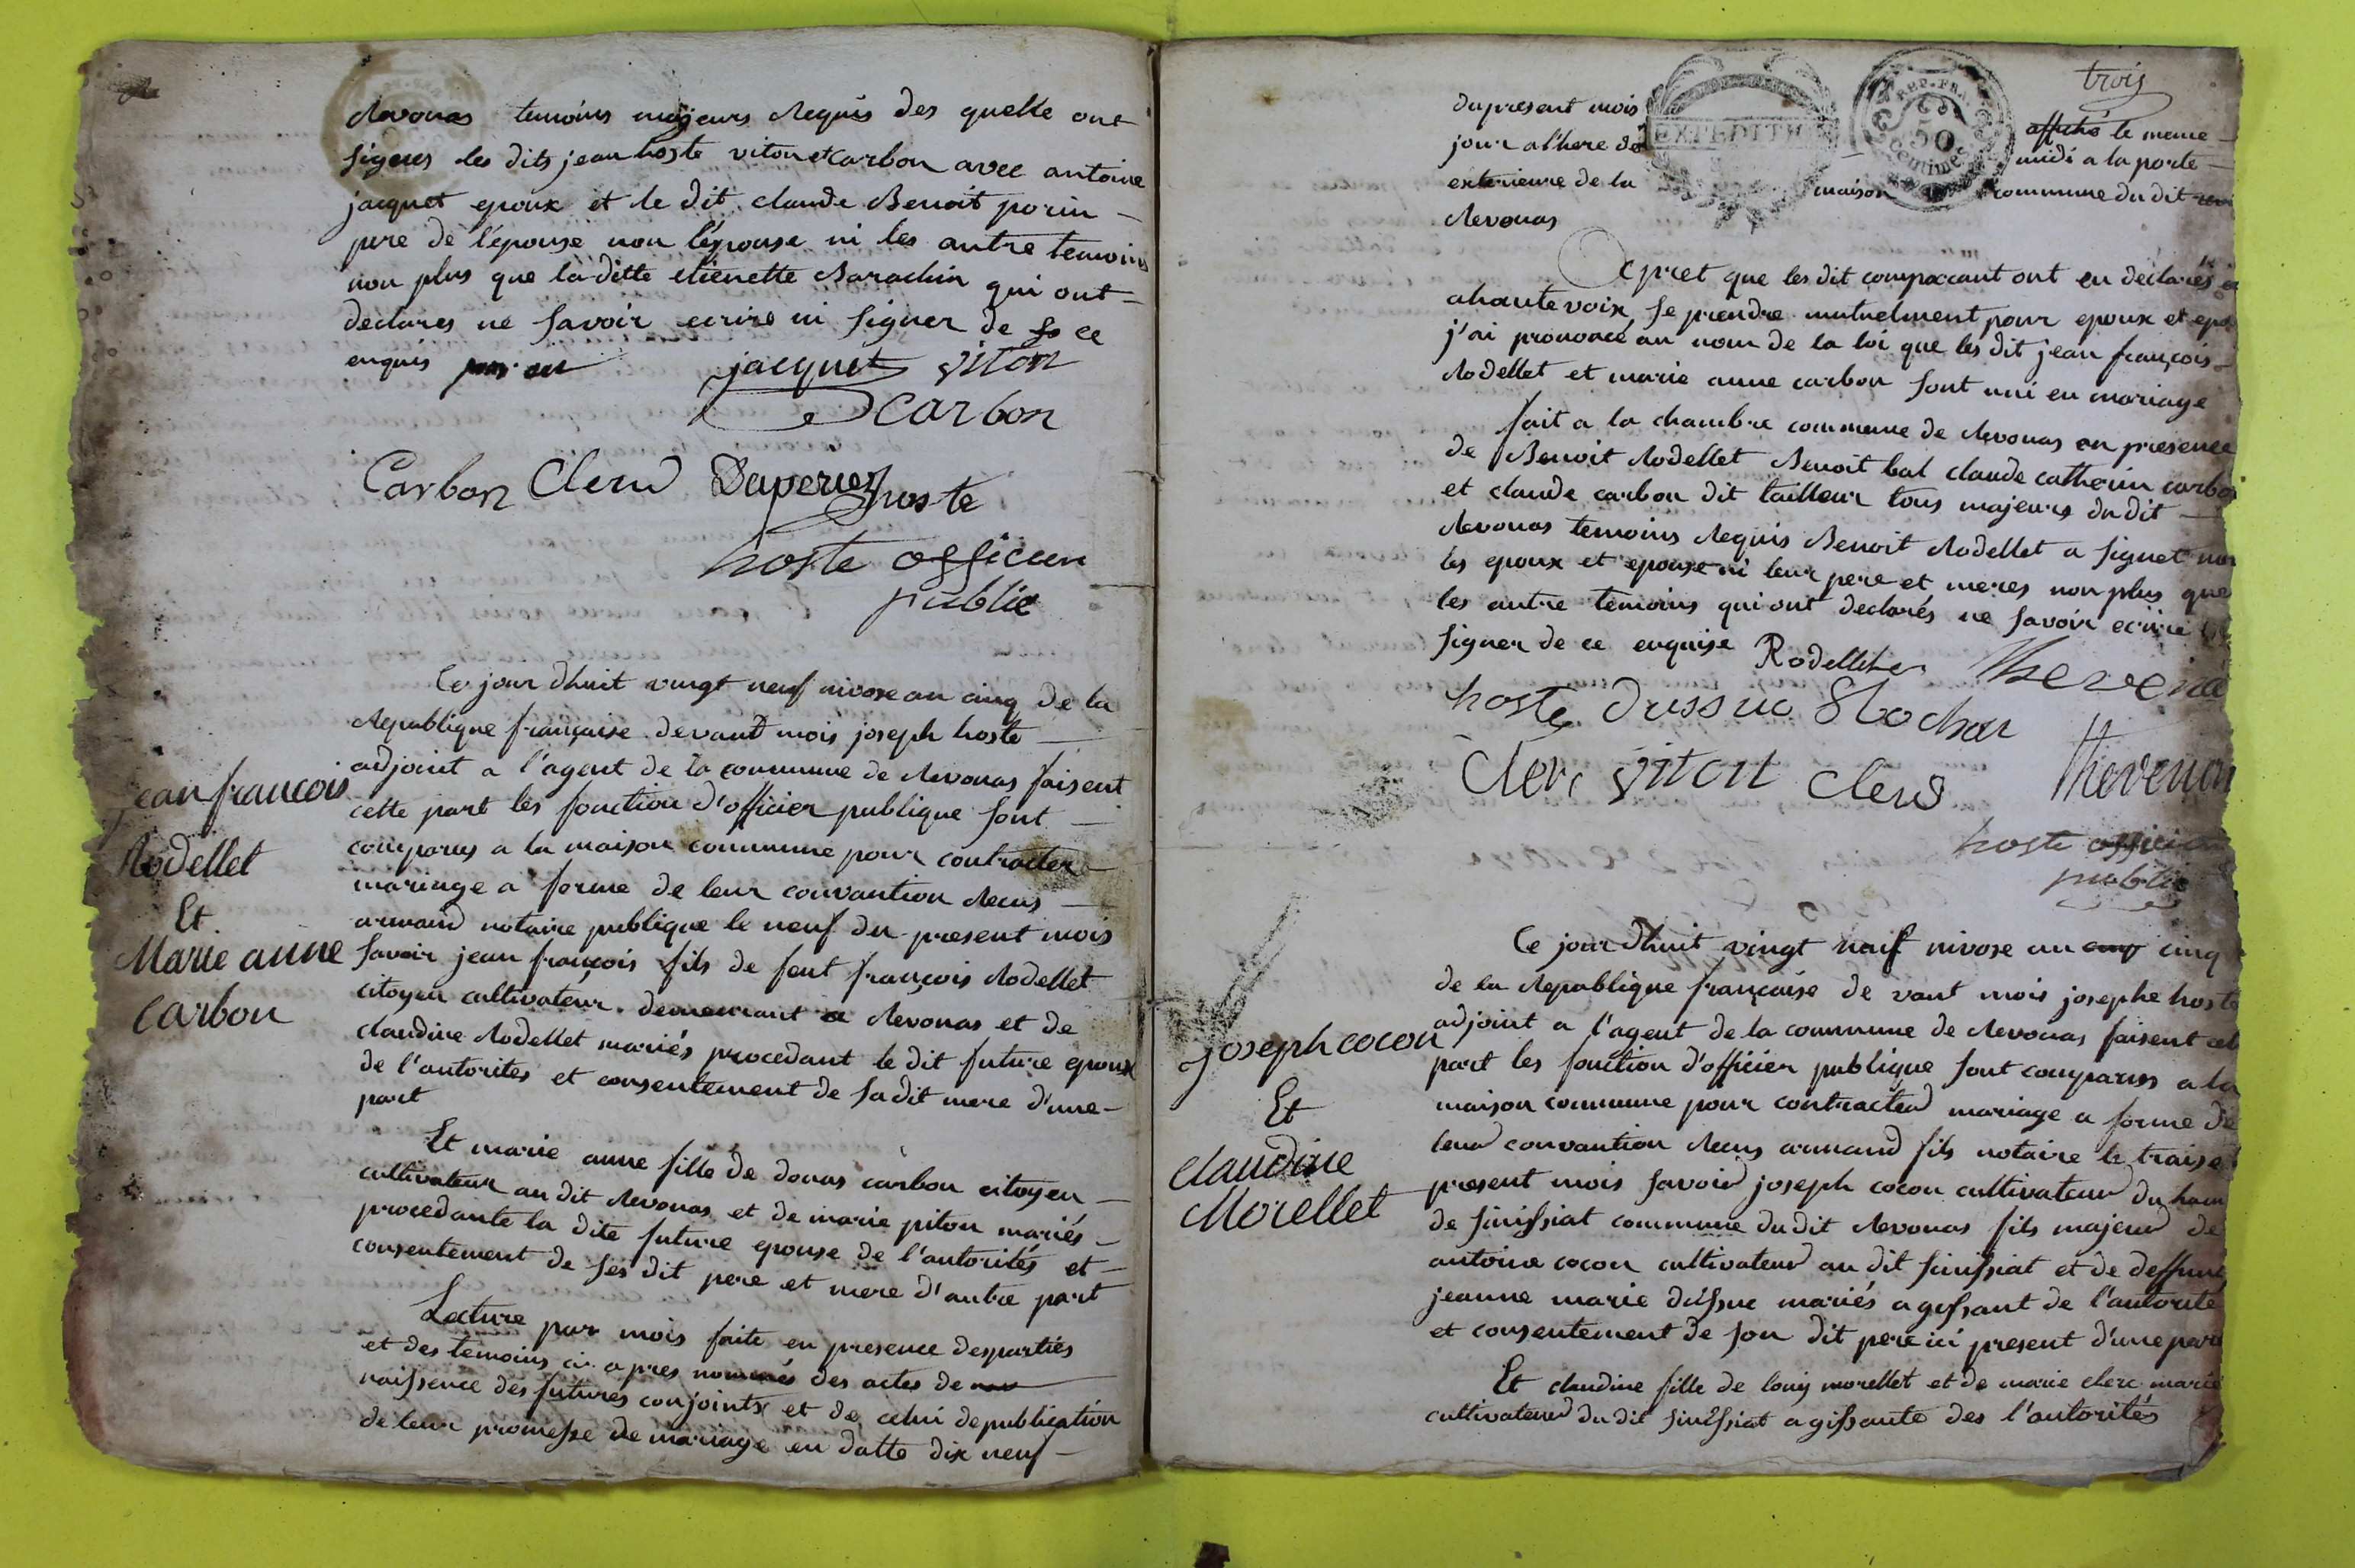 Revonas temoins majeurs Requis des quelle ont
signes les dits jean hoste viton et carbon avec antoine
jacquet epoux et le dit claude Benoit porin
pere de l'épouse non l'épouse ni les autre temoins
non plus que la ditte etienette Barachin qui ont
declares ne savoir ecrire ni signer de ce
enquis
jacquet viton
carbon
Carbon Clerc Duperier hoste
hoste officier
public
Ce jour dhuit vingt neuf nivose an cinq de la
Republique française devant mois joseph hoste
adjoint a l'agent de la commune de Revonas faisent
cette part les fonction d'officier publique sont
comparus a la maison commune pour contracter
mariage a forme de leur convantion Recus
armand notaire publique le neuf du present mois
savoir jean françois fils de feut françois Rodellet
citoyen cultivateur demeurant a Revonas et de
claudine Rodellet mariés procedant le dit future epoux
de l'autorites et consentement de sa dit mere d'une
part
jean francois
Rodellet
Et
Marie anne
carbon
Et marie anne fille de donas carbon citoyen
cultivateur au dit Revonas et de marie piton mariés
procedante la dite future epouse de l'autorités et
consentement de ses dit pere et mere d'autre part
Lecture par mois faite en presence desparties
et des temoins ci apres nommés des actes de
naissence des futures conjoints et de celui de publication
de leur promesse de mariage en datte dix neuf
trois
du present mois affiché le meme
EXPEDITION
REP. FRA.
50
centimes
jour a l'here de midi a la porte
exterieure de la maison commune du dit
Revonas
Apret que les dit comparant ont eu declarés
a haute voix se prendre mutuelment pour epoux et
j'ai prononcé au nom de la loi que les dit jean françois
Rodellet et marie anne carbon sont uni en mariage
fait a la chambre commune de Revonas en presence
de Benoit Rodellet Benoit bal claude catherin carbon
et claude carbon dit tailleur tous majeurs du dit
Revonas temoins Requis Benoit Rodellet a signet non
les epoux et epouse ni leur pere et meres non plus que
les autre temoins qui ont declarés ne savoir ecrire
signer de ce enquise Rodellet
hoste Dussuc
Clerc viton Clerc Thevenon
hoste officier
public
Ce jour dhuit vingt neuf nivose an cinq
de la Republique française de vant mois josephe hoste
adjoint a l'agent de la commune de Revonas faisent
part les fonction d'officier publique sont comparus a la
maison commune pour contracter mariage a forme de
leur convantion Recus armand fils notaire le traise
present mois savoir joseph cocon cultivateur du
de sinissiat commune du dit Revonas fils majeur de
antoine cocon cultivateur au dit sinissiat et de
jeanne marie dussuc mariés agissant de l'autorité
et consentement de son dit pere ici present d'une part
joseph cocon
Et
claudine
Morellet
Et claudine fille de louis morellet et de marie clerc marié
cultivateur du dit sinissiat agissante des l'autorités